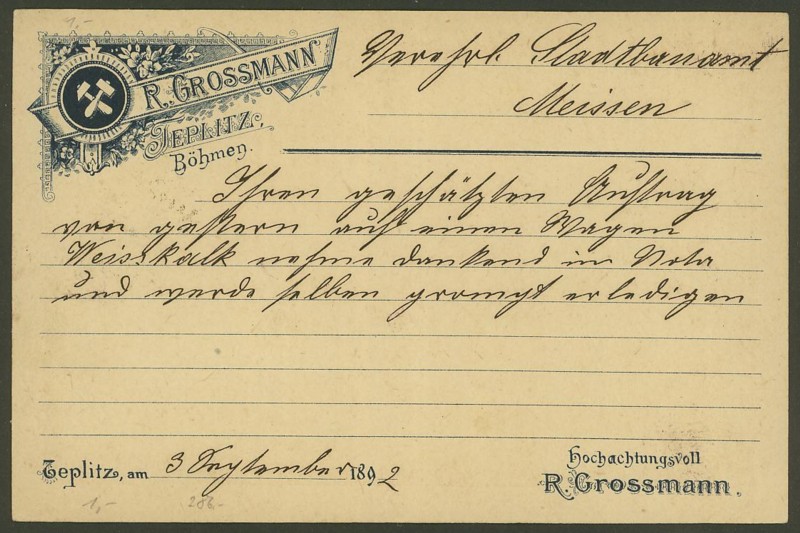 1,-
R. GROSSMANN
TEPLITZ,
Böhmen.
Verehrl. Stadtbauamt
Meissen
Ihren geschätzten Auftrag
von gestern auf einen Wagen
Weisskalk nehme dankend in Nota
und werde selben prompt erledigen
Teplitz, am 3 September 1892
Hochachtungsvoll
R. Grossmann.
1,- 286.-